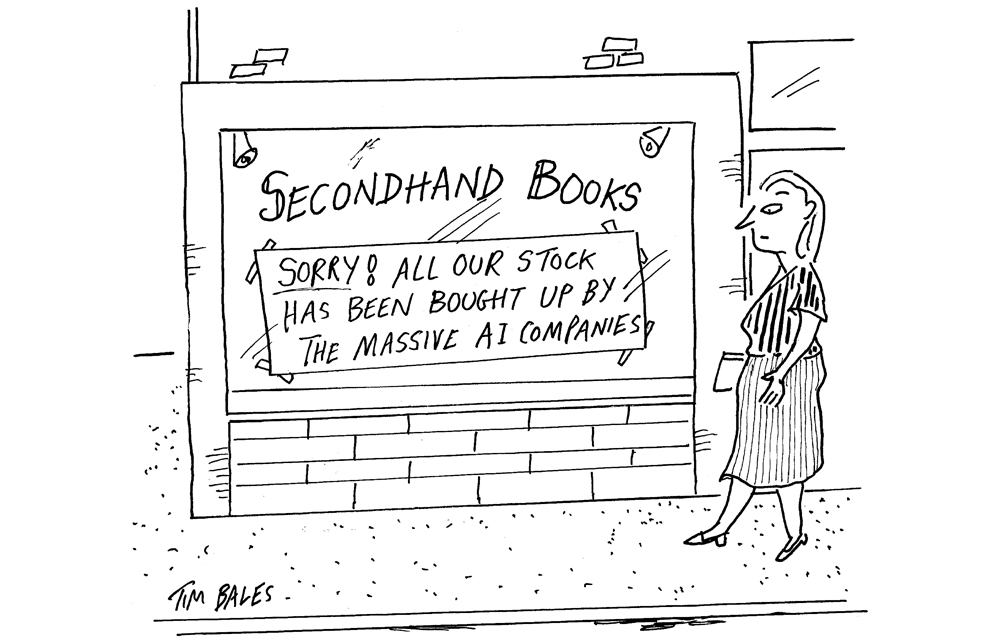 SECONDHAND BOOKS
SORRY! ALL OUR STOCK
HAS BEEN BOUGHT UP BY
THE MASSIVE AI COMPANIES
TIM BALES